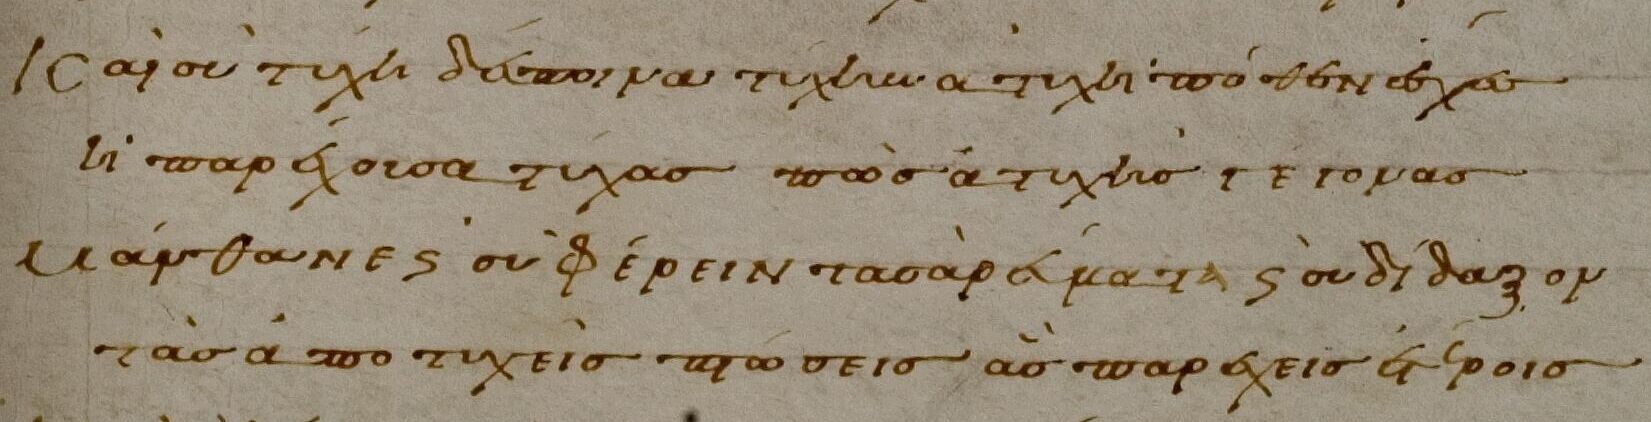 Καὶ σὺ τύχη δέσποινα τύχην ἀτυχῆ πόθεν ἔσχες
ἡ παρέχουσα τύχας πῶς ἀτυχὴς γέγονας
Μάνθανε ϗ σὺ φέρειν τὰ σὰ ῥεύματα ϗ σὺ διδάσκου
τὰς ἀποτυχεῖς πτώσεις ἃς παρέχεις ἑτέροις